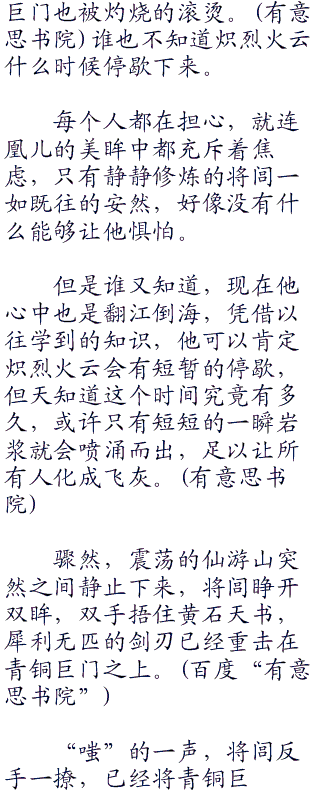 巨门也被灼烧的滚烫。(有意
思书院)谁也不知道炽烈火云
什么时候停歇下来。
每个人都在担心，就连
凰儿的美眸中都充斥着焦
虑，只有静静修炼的将闾一
如既往的安然，好像没有什
么能够让他惧怕。
但是谁又知道，现在他
心中也是翻江倒海，凭借以
往学到的知识，他可以肯定
炽烈火云会有短暂的停歇，
但天知道这个时间究竟有多
久，或许只有短短的一瞬岩
浆就会喷涌而出，足以让所
有人化成飞灰。(有意思书
院)
骤然，震荡的仙游山突
然之间静止下来，将闾睁开
双眸，双手捂住黄石天书，
犀利无匹的剑刃已经重击在
青铜巨门之上。(百度“有意
思书院”)
“嗤”的一声，将闾反
手一撩，已经将青铜巨